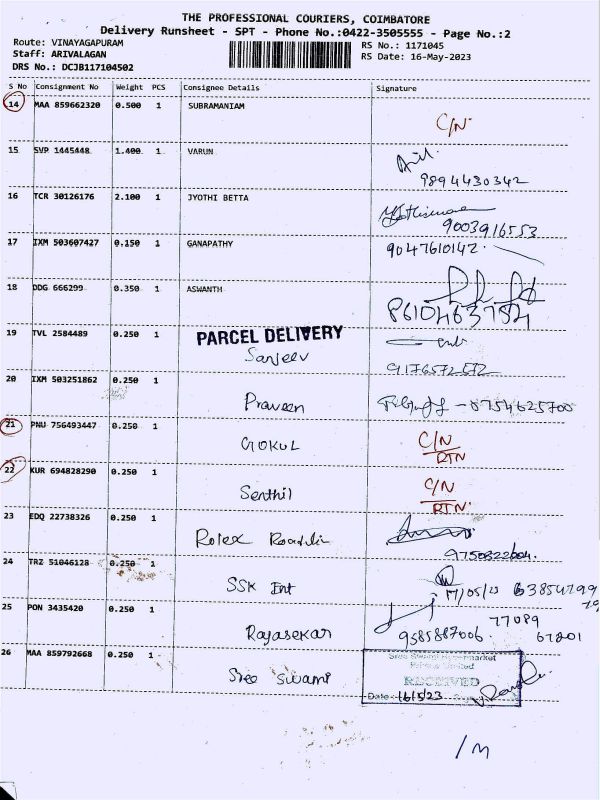 THE PROFESSIONAL COURIERS, COIMBATORE
Delivery Runsheet - SPT - Phone No.:0422-3505555 - Page No.:2
Route: VINAYAGAPURAM RS No.: 1171045
Staff: ARIVALAGAN RS Date: 16-May-2023
DRS No.: DCJB117104502
S No Consignment No Weight PCS Consignee Details Signature
14 MAA 859662320 0.500 1 SUBRAMANIAM
C/N
15 SVP 1445448 1.400 1 VARUN
9894430342
16 TCR 30126176 2.100 1 JYOTHI BETTA
9003916553
17 IXM 503607427 0.150 1 GANAPATHY 9047610142
18 DDG 666299 0.350 1 ASWANTH
19 TVL 2584489 0.250 1 PARCEL DELIVERY
Sanjeev
9176572672
20 IXM 503251862 0.250 1
Praveen
21 PNU 756493447 0.250 1
GOKUL C/N
RTN
22 KUR 694828290 0.250 1 C/N
Senthil RTN
23 EDQ 22738326 0.250 1
Rolex
24 TRZ 51046128 0.250 1
SSK Ent 17/05/23
25 PON 3435420 0.250 1 77089
Rajasekar 9585887006 67801
26 MAA 859792668 0.250 1
Sree Swami RECEIVED
Date 16/5/23